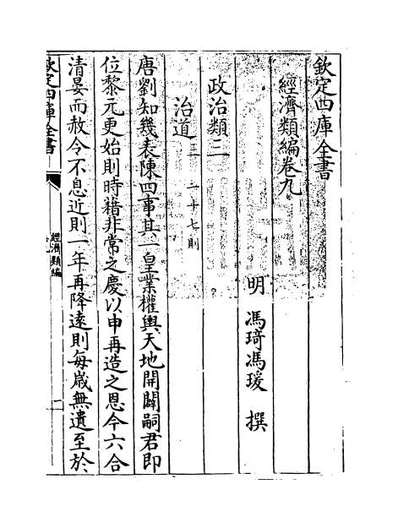 欽定四庫全書
經濟類編卷九
明 馮琦馮瑗 撰
政治類二
治道三 二十七則
唐劉知幾表陳四事其一皇業權輿天地開闢嗣君即
位黎元更始則時藉非常之慶以申再造之恩今六合
清晏而赦令不息近則一年再降遠則每歲無遺至於
欽定四庫全書
經濟類編
一